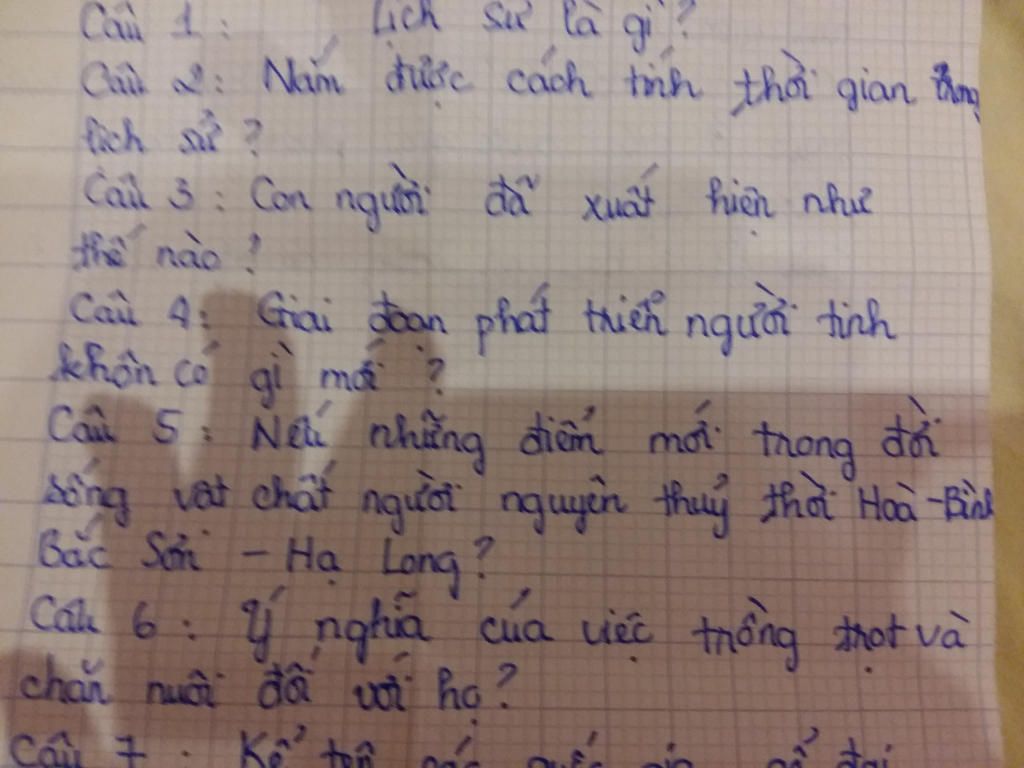 Câu 1: Lịch sử là gì?
Câu 2: Nắm được cách tính thời gian trong
lịch sử?
Câu 3: Con người đã xuất hiện như
thế nào?
Câu 4: Giai đoạn phát triển người tinh
khôn có gì mới?
Câu 5: Nêu những điểm mới trong đời
sống vật chất người nguyên thuỷ thời Hoà-Bình
Bắc Sơn - Hạ Long?
Câu 6: Ý nghĩa của việc trồng trọt và
chăn nuôi đối với họ?
Câu 7: Kể tên các quốc gia cổ đại